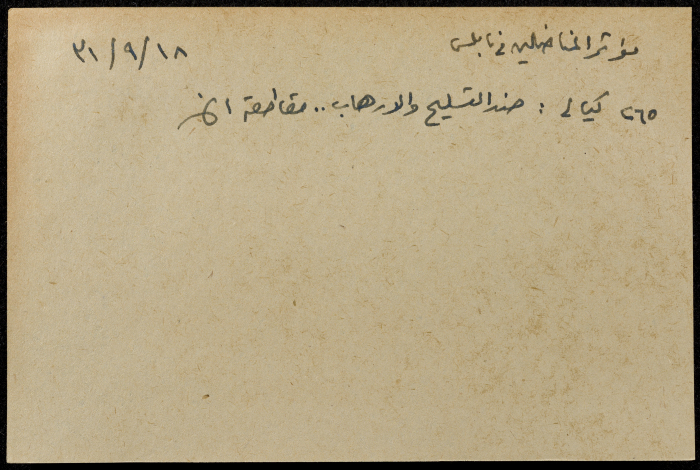 مؤتمر المناضلين في نابلس ٣١/٩/١٨
٢٦٥ كيالي : ضد التسليح والارهاب .. مقاطعة